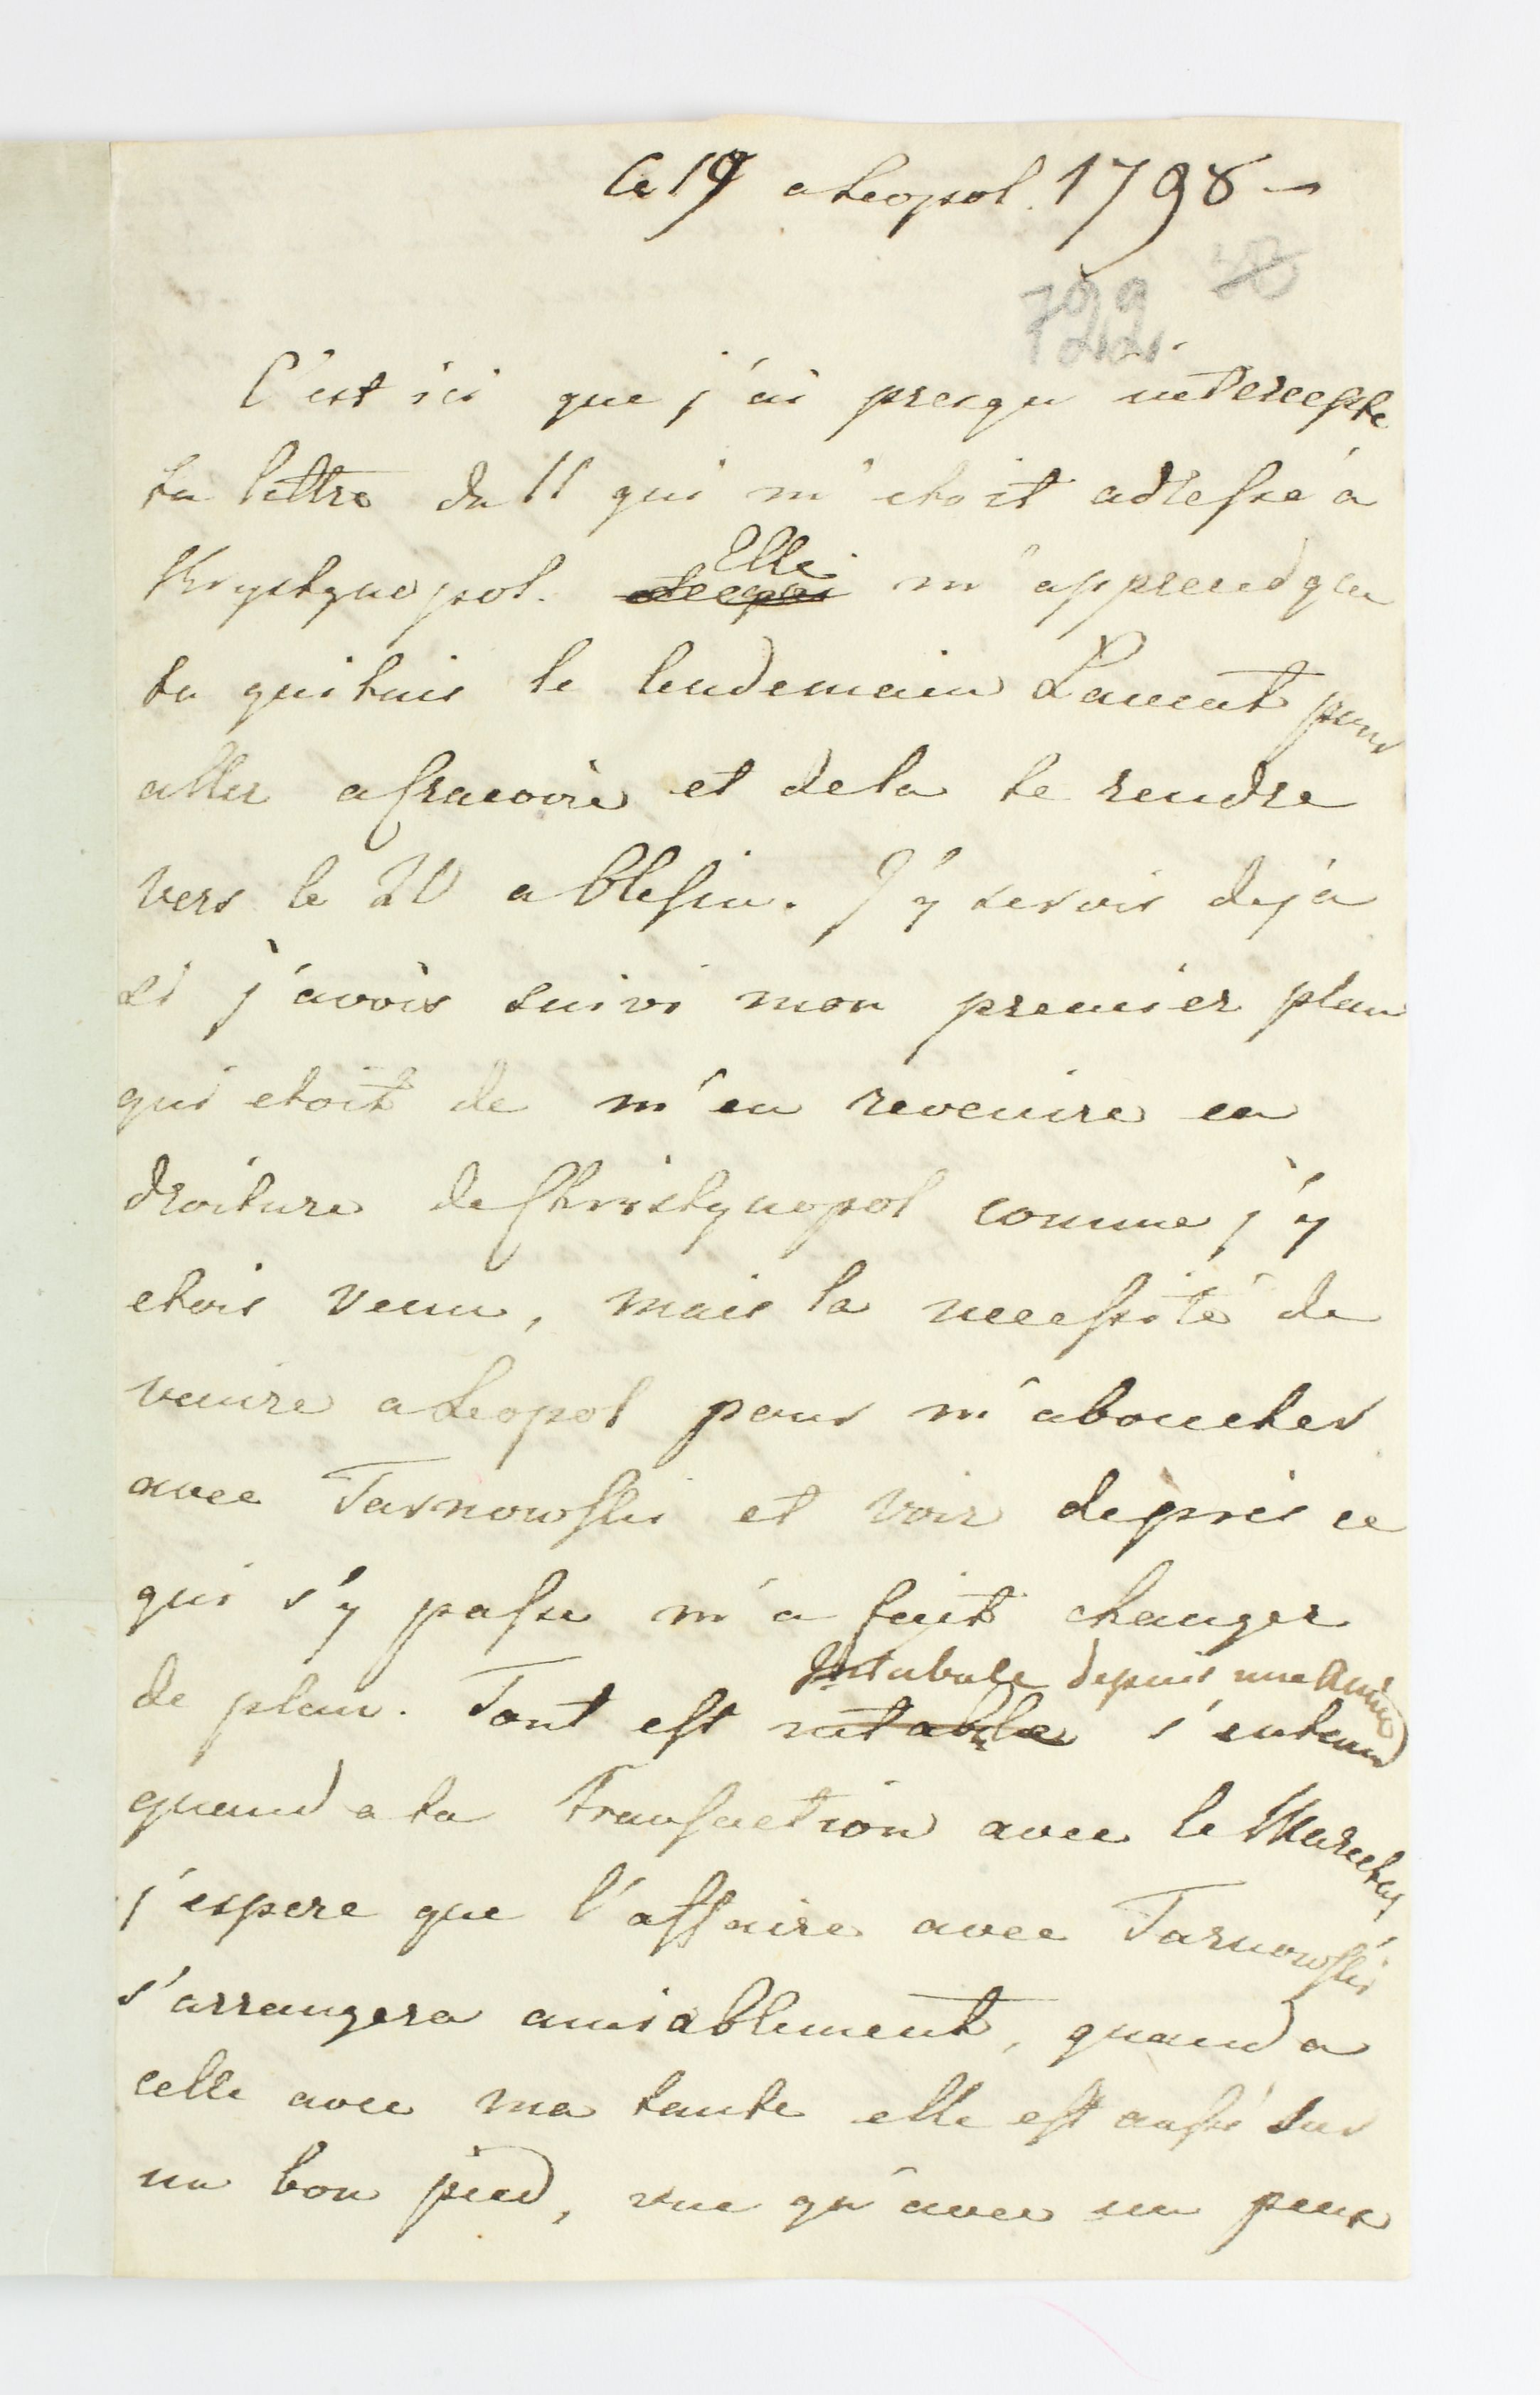 Ce 19 a Leopol. 1798 —
722
C'est ici que j'ai presqu intercepte
ta lettre du 11 qui m'etoit adresse à
Krystynopol. Elle m'apprend que
tu quitais le lendemain Lancut pour
aller a Cracovie et dela te rendre
vers le 20 a Clesin. J'y serois deja
si j'avois suivi mon premier plan
qui etoit de m'en revenire en
droiture de Christynopol comme j'y
etois venu, mais la necessité de
venire a Leopol pour m'aboucher
avec Tarnowski et voir de pres ce
qui s'y passe m'a fait changer
Intabule depuis une
de plan. Tout est intabule s'entend
quand a ta Transaction avec le Marechal
j'espere que l'affaire avec Tarnowski
s'arrangera amiablement, quand a
celle avec ma tante elle est aussi sur
un bon pied, vue qu'avec un peux